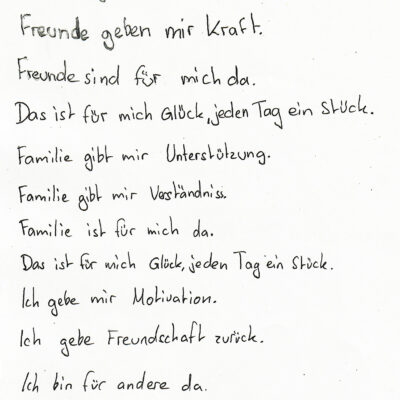 Freunde geben mir Kraft.
Freunde sind für mich da.
Das ist für mich Glück, jeden Tag ein Stück.
Familie gibt mir Unterstützung.
Familie gibt mir Verständniss.
Familie ist für mich da.
Das ist für mich Glück, jeden Tag ein Stück.
Ich gebe mir Motivation.
Ich gebe Freundschaft zurück.
Ich bin für andere da.